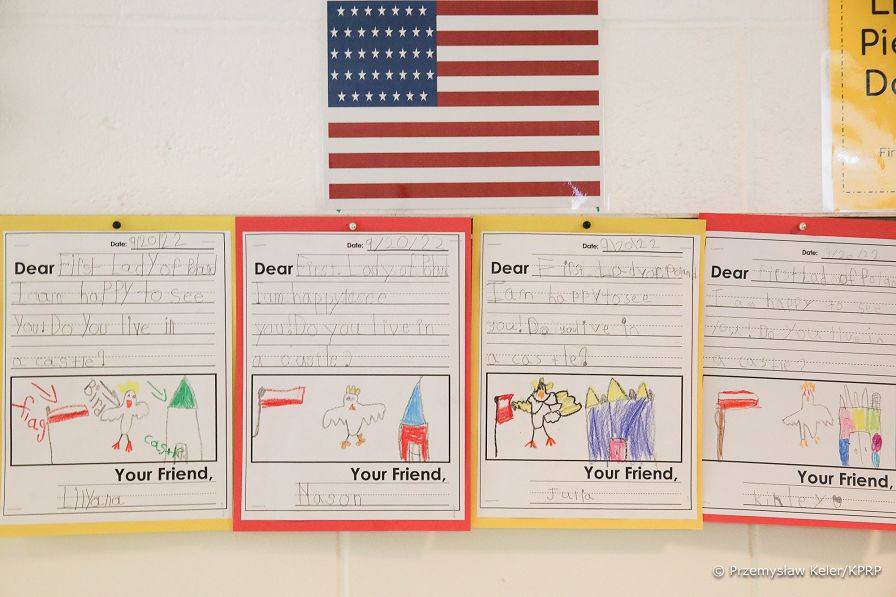 Pie
Do
Fir
Date: 9/20/22
Dear First Lady of Poland
I am happy to see
You! Do You live in
a castle?
flag
Bird
castle
Your Friend,
Lilyana
Date: 9/20/22
Dear First Lady of Poland
I am happy to see
you! Do you live in
a castle?
Your Friend,
Nason
Date: 9/20/22
Dear First Lady of Poland
I am happy to see
you! Do you live in
a castle?
Your Friend,
Julia
Date: 9/20/22
Dear First Lad of Polan
I am happy to see
you! Do You live in
a castle?
Your Friend,
kinley
© Przemysław Keler/KPRP